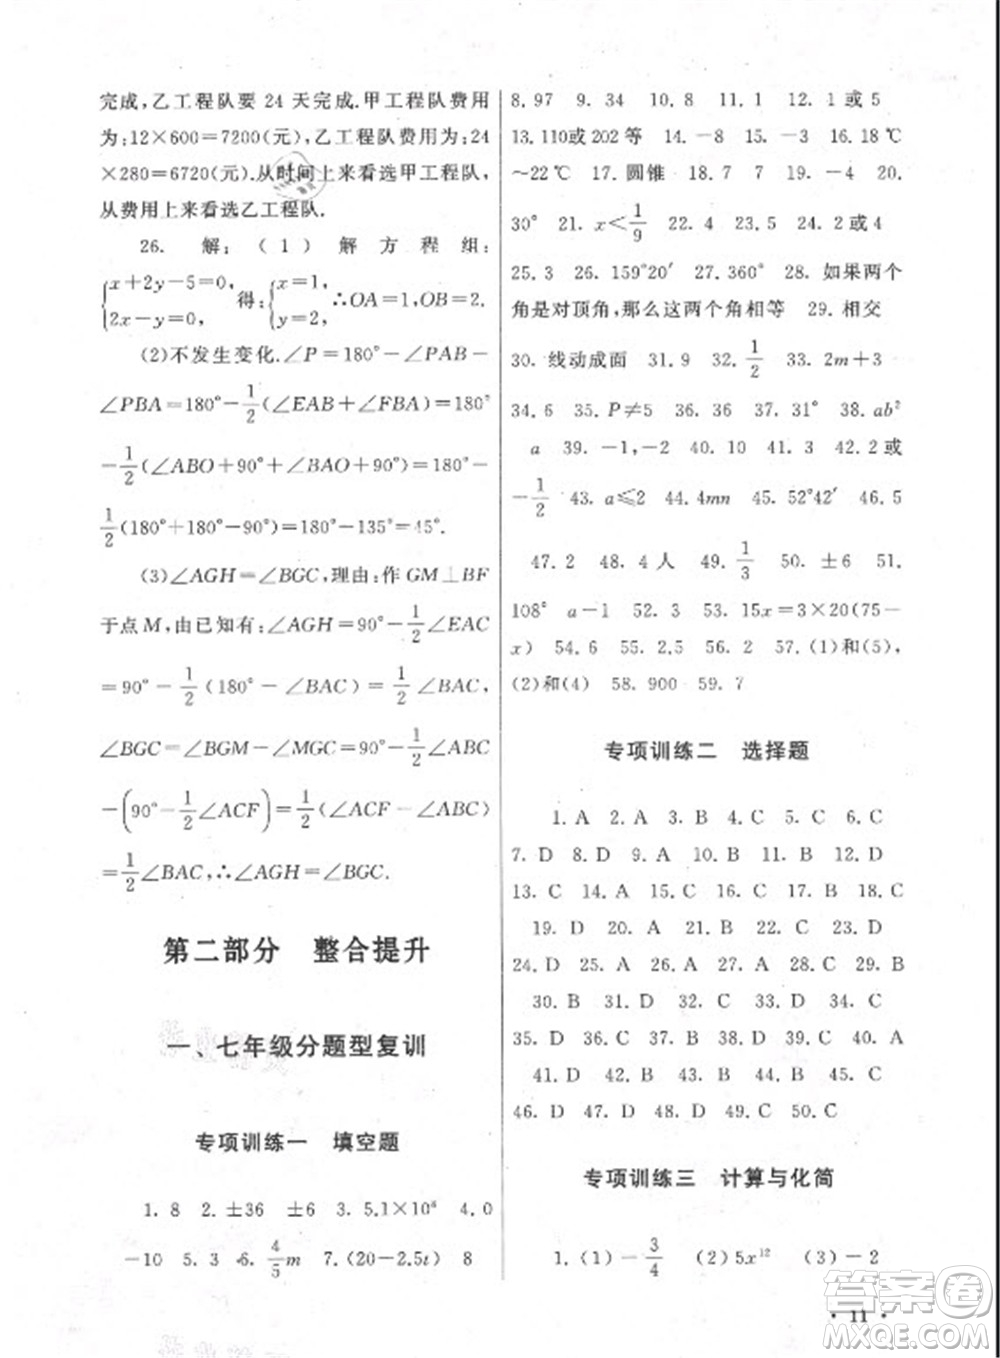 完成,乙工程队要 24 天完成.甲工程队费用
为:12×600=7200(元),乙工程队费用为:24
×280=6720(元).从时间上来看选甲工程队,
从费用上来看选乙工程队.
26. 解:(1)解方程组:
{x+2y-5=0, 2x-y=0, 得:{x=1, y=2, ∴OA=1,OB=2.
(2)不发生变化.∠P=180°-∠PAB-
∠PBA=180°-1/2(∠EAB+∠FBA)=180°
-1/2(∠ABO+90°+∠BAO+90°)=180°-
1/2(180°+180°-90°)=180°-135°=45°.
(3)∠AGH=∠BGC,理由:作 GM⊥BF
于点 M,由已知有:∠AGH=90°-1/2∠EAC
=90°-1/2(180°-∠BAC)=1/2∠BAC,
∠BGC=∠BGM-∠MGC=90°-1/2∠ABC
-(90°-1/2∠ACF)=1/2(∠ACF-∠ABC)=
1/2∠BAC,∴∠AGH=∠BGC.
第二部分 整合提升
一、七年级分题型复训
专项训练一 填空题
1. 8 2. ±36 ±6 3. 5.1×10⁶ 4. 0
-10 5. 3 6. 4/5 m 7. (20-2.5t) 8
8. 97 9. 34 10. 8 11. 1 12. 1或 5
13. 110或 202 等 14. -8 15. -3 16. 18 ℃
~22 ℃ 17. 圆锥 18. 7 7 19. -4 20.
30° 21. x<1/9 22. 4 23. 5 24. 2或8
25. 3 26. 159°20′ 27. 360° 28. 如果两个
角是对顶角,那么这两个角相等 29. 相交
30. 线动成面 31. 9 32. 1/2 33. 2m+3
34. 6 35. P≠5 36. 36 37. 31° 38. ab²
a 39. -1,-2 40. 10 41. 3 42. 2 或
-1/2 43. a≤2 44. 4mn 45. 52°42′ 46. 5
47. 2 48. 4 人 49. 1/3 50. ±6 51.
108° a-1 52. 3 53. 15x=3×20(75-
x) 54. 6 55. 2 56. 2 57. (1)和(5),
(2)和(4) 58. 900 59. 7
专项训练二 选择题
1. A 2. A 3. B 4. C 5. C 6. C
7. D 8. D 9. A 10. B 11. B 12. D
13. C 14. D 15. A 16. C 17. B 18. C
19. D 20. A 21. B 22. D 23. C
24. D 25. C 26. D 27. A 28. C 29. B
30. B 31. D 32. C 33. A 34. C
35. D 36. D 37. C 38. C 39. C 40. A
41. D 42. D 43. B 44. B 45. C
46. D 47. D 48. C 49. D 50. C
专项训练三 计算与化简
1. (1)-3/4 (2)5x¹² (3)-2
· 11 ·
答案卷
MXQE.COM